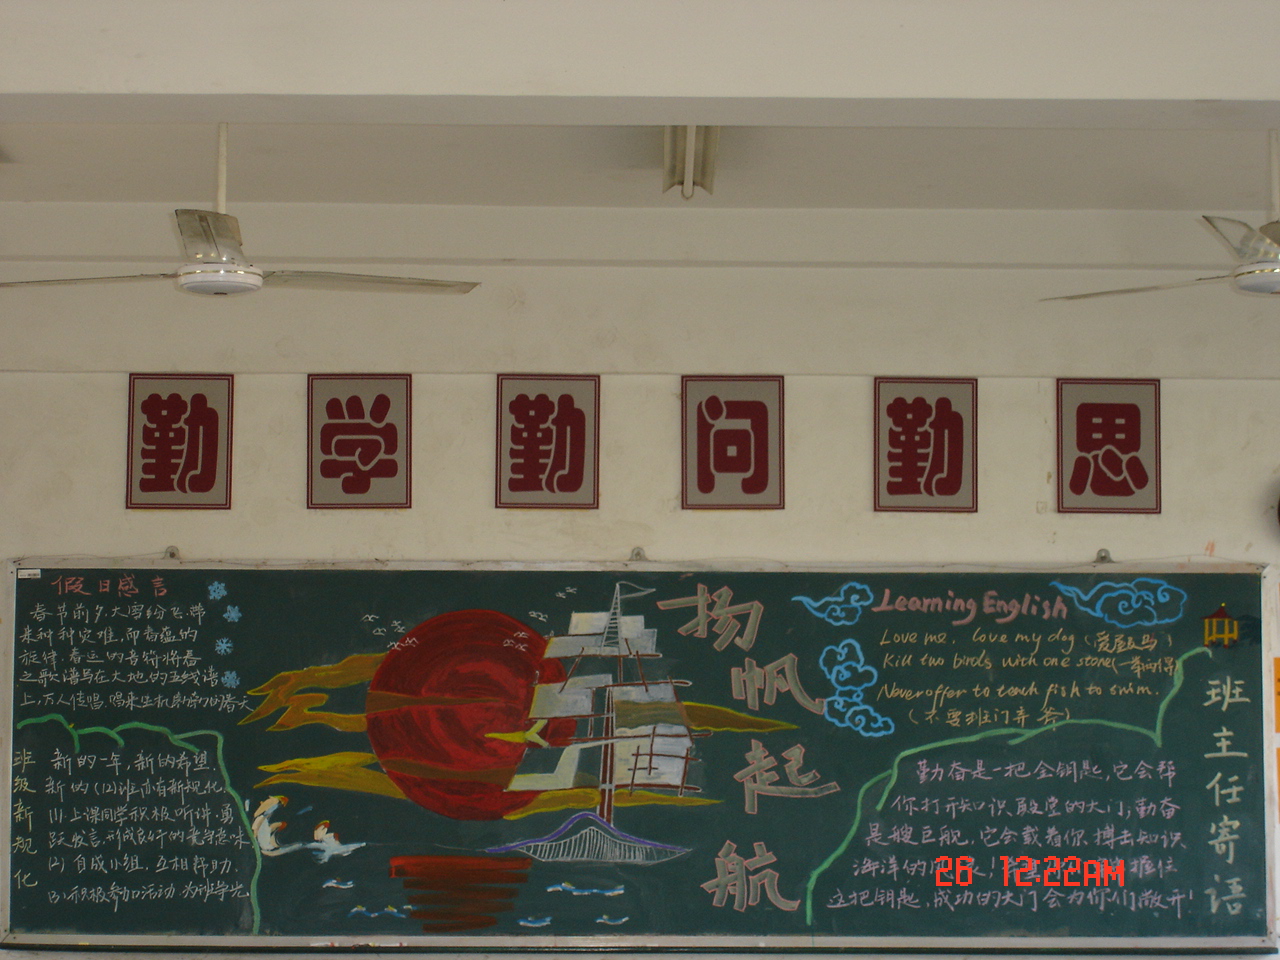 勤学勤问勤思
假日感言
春节前夕,大雪纷飞,带
来种种灾难,即
旋律,春运的音符将春
之歌谱写在大地的五线谱
上,万人传唱,唱来生机勃勃的春天
班级新规化
新的一年,新的希望,
新的(12)班亦有新规化
(1)上课同学积极听讲,勇
跃发言,形成良好的
(2)自成小组,互相帮助.
(3)积极参加活动,为班争光
扬帆起航
Learning English
Love me, love my dog (爱屋及乌)
Kill two birds with one stone(一举两得)
Never offer to teach fish to swim.
(不要班门弄斧)
班主任寄语
勤奋是一把金钥匙,它会帮
你打开知识殿堂的大门;勤奋
是艘巨舰,它会载着你搏击知识
海洋的 握住
这把钥匙,成功的大门会为你们敞开!
26 12:22AM